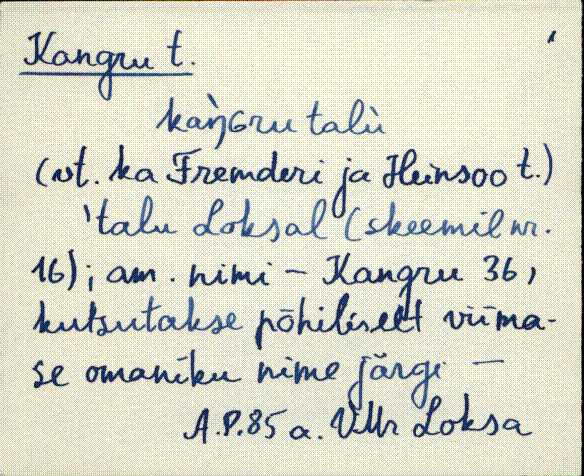 Kangru t.
kaŋ̀ɢru talù
(vt. ka Fremderi ja Heinsoo t.)
'talu Loksal (skeemil nr.
16); am. nimi – Kangru 36,
kutsutakse põhiliselt viima-
se omaniku nime järgi –
A.P. 85 a. VMr Loksa